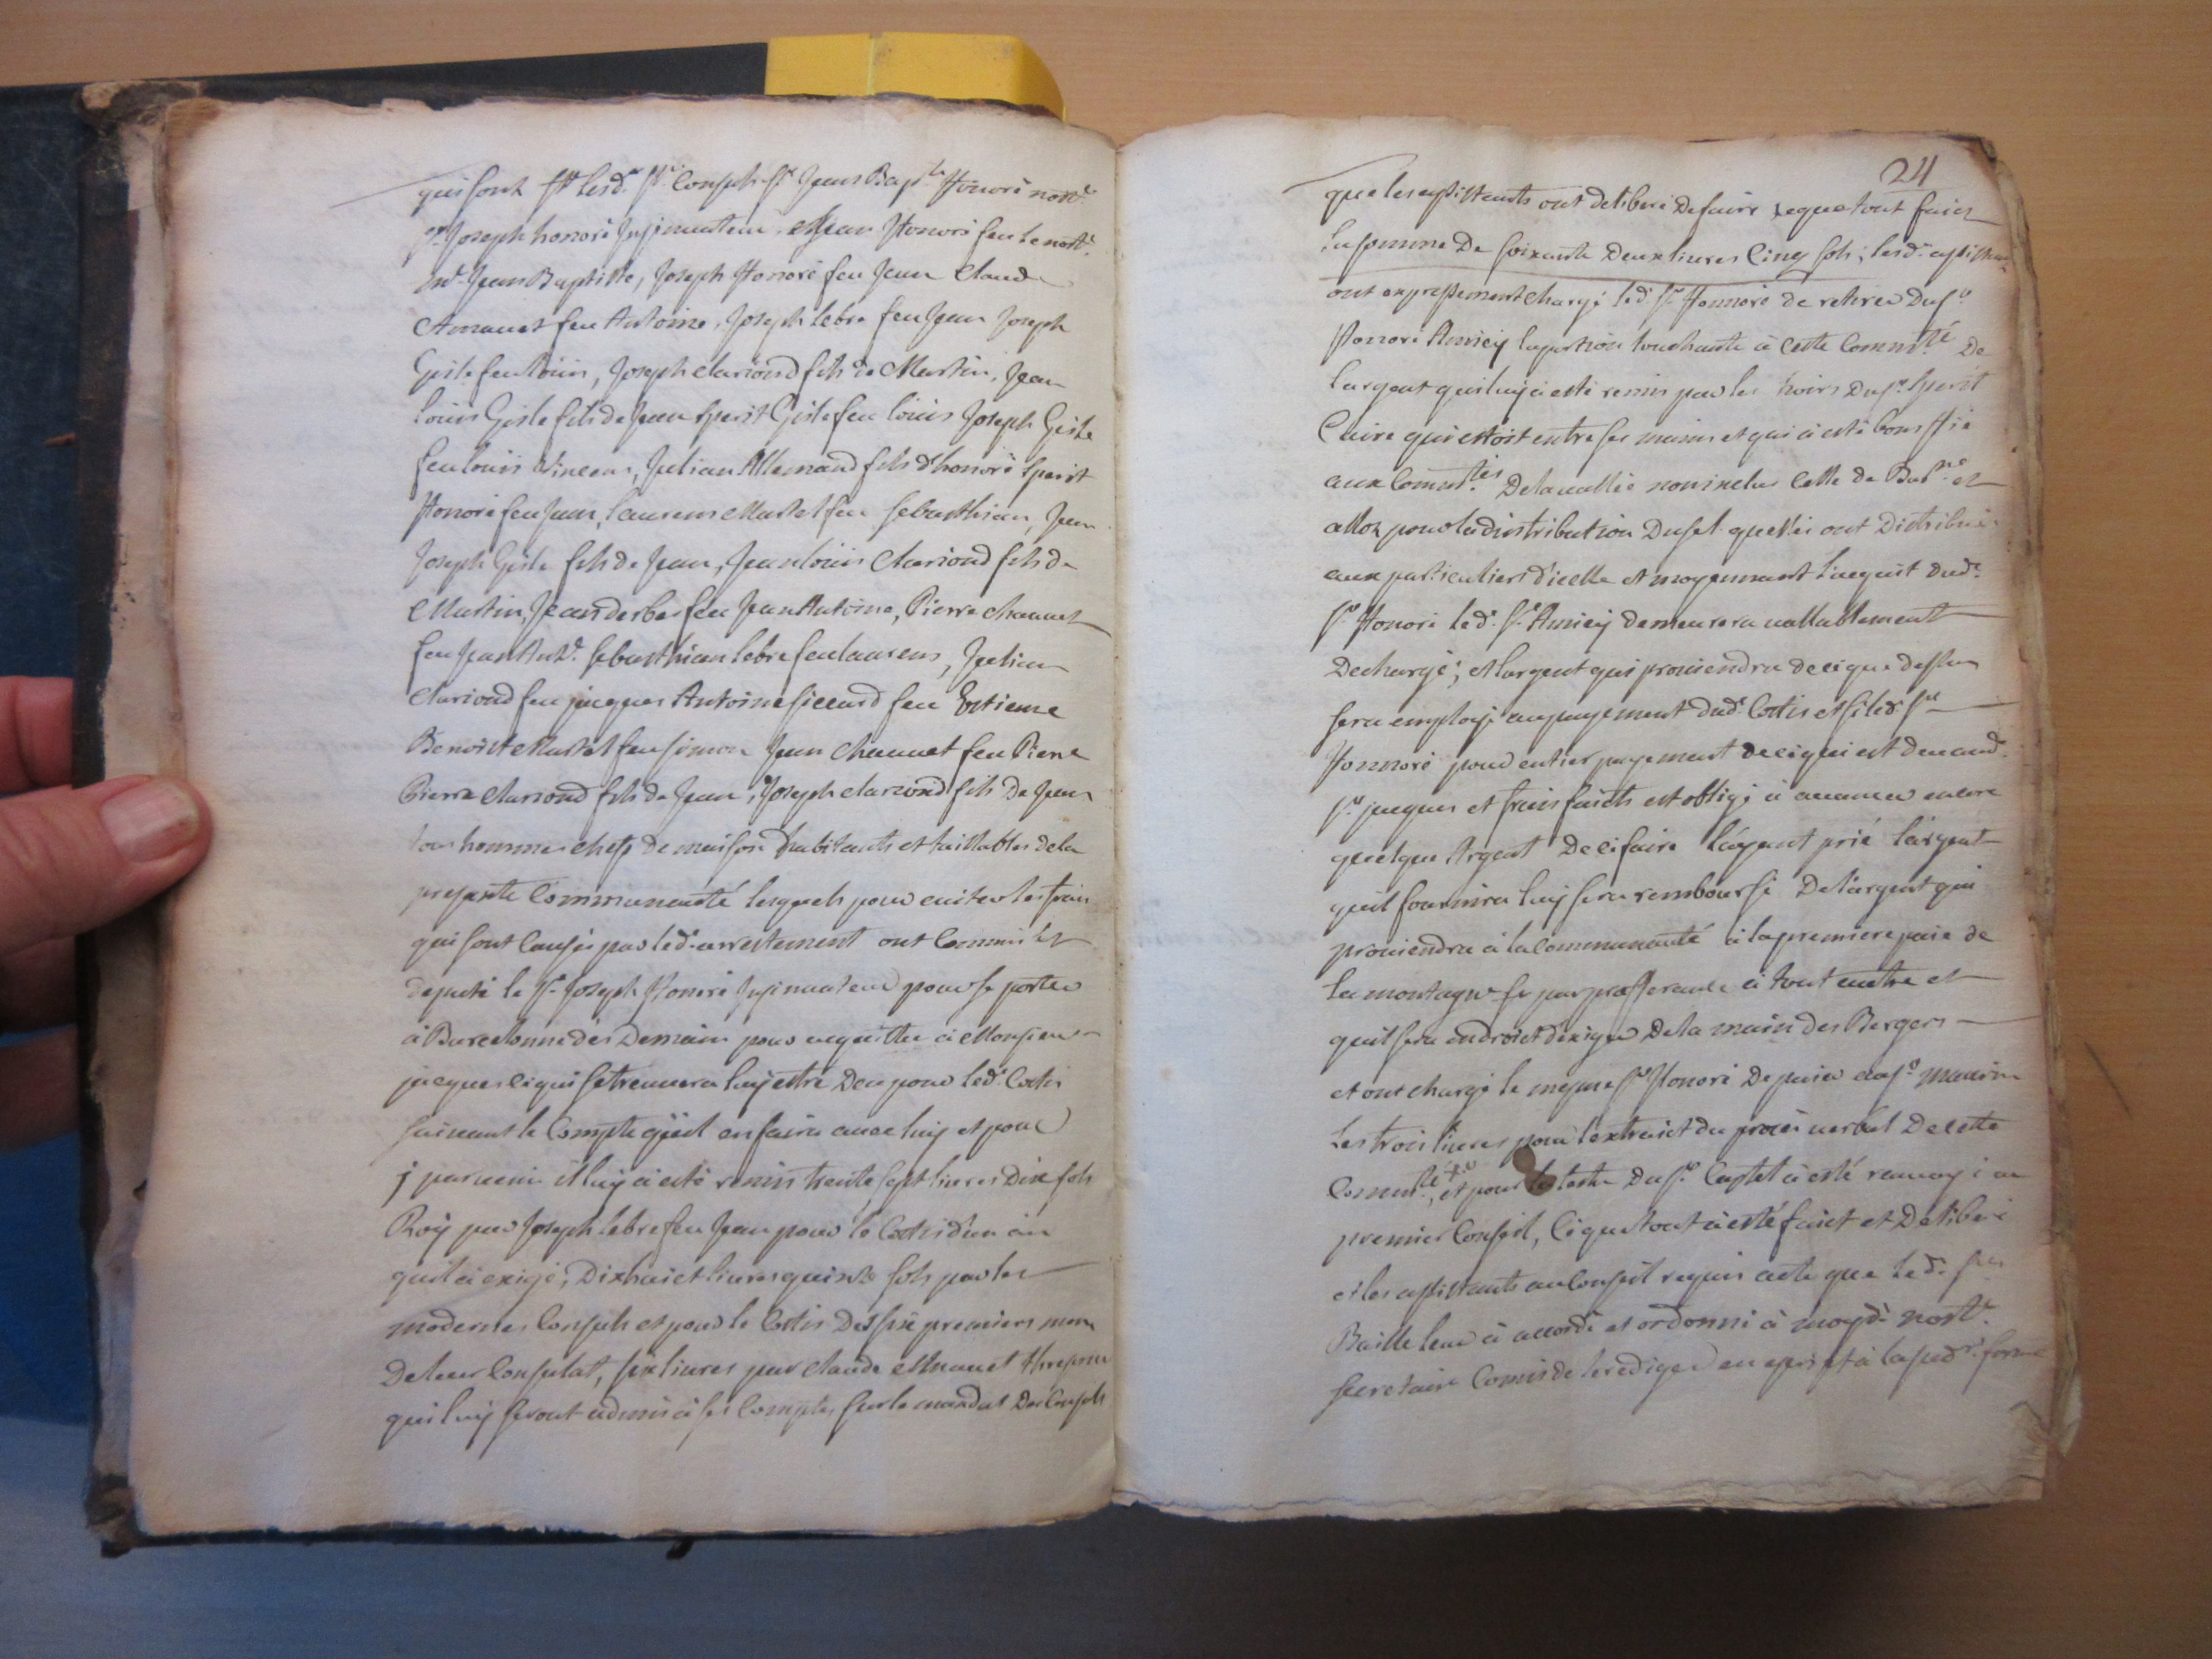 qui sont Sr lesd. srs Consuls sr Jean Bapte Honoré notre
sr Joseph honoré Insinuateur, et Jean Honoré feu le notre
Me Jean Baptiste, Joseph Honoré feu Jean Claude
feu Antoine, Joseph Lebre feu Jean Joseph
Gisle feu Louis, Joseph Clariond fils de Martin, Jean
Louis Gisle fils de Jean Sperit Gisle feu Louis Joseph Gisle
feu Louis Vincens, Julian Allemand fils d'honoré Sperit
Honoré feu Jean, Laurens Martel feu Sebasthian, Jean
Joseph Gisle fils de Jean, Jean Louis Clariond fils de
Martin, Jean derbes feu Jean Antoine, Pierre Chauuet
feu Jean Ante Sebasthian Lebre feu Laurens, Julian
Clariond feu jacques Antoine Sicard feu Estienne
Benoist Martel feu Simon Jean Chauuet feu Pierre
Pierre Clariond fils de Jean, Joseph Clariond fils de Jean
tous hommes chefs de maison habitants et taillables de la
presente Communauté lesquels pour euiter les frais
qui sont causés par led. arrestement ont Commis et
deputé le sr Joseph Honoré Insinuateur pour se porter
à Barcelonne dès Demain pour acquitter à Monsieur
jacques ce qui se treuuera luy estre Deu pour led. Cottis
suiuant le Compte qu'il en faira auec luy et pour
y paruenir il luy a esté remis trente sept liures Dix sols
Roy par Joseph Lebre feu Jean pour le Cottis d'un an
quil a exigé, Dixhuict liures quinze sols par les
modernes Consuls et pour le Cottis Des six premiers mois
De leur Consulat, six liures par Claude
qui luy seront admis à ses Comptes sur le mandat Des Consuls
24
que les assistants ont deliberé De faire ce que tout faict
la somme De soixante Deux liures Cinq sols; lesd. assistants
ont expressement chargé led. sr Honnoré de retirer Du sr
Honoré Amiey la portion touchante à cette Commté De
l'argent quil luy a esté remis par les hoirs Du sr Sperit
Caire qui estoit entre ses mains et qui a esté
aux Commtés De la vallée non inclus Celle de Barne et
alloz pour la distribution Du sel quelles ont Distribué
aux particuliers d'icelle et moyennant l'acquit dud.
sr Honoré led. sr Amiey demeurera vallablement
Dechargé; et l'argent qui prouiendra de ce que dessus
sera employé au payement dud. Cottis et si led. sr
Honnoré pour entier payement de ce qui est deu aud.
sr jacques et frais faicts est obligé à auancer encore
quelque Argent De ce faire l'ayant prié l'argent
quil fournira luy sera remboursé De l'argent qui
prouiendra à la Communauté à la premiere paie de
la montagne par prefferance à tout autre et
quil sera en droict d'exiger De la main des Bergers
et ont chargé le mesme sr Honoré De paier au sr maurin
Les trois liures pour l'extraict du procès verbal De cette
Commté, et pour la lettre Du sr Castel a esté renuoyé au
premier Conseil, Ce que tout a esté faict et Deliberé
et les assistants au Conseil requis acte que led. sr
Baille leur a accordé et ordonné à moyd. notre
secretaire Comis de le rediger en escript à la susd. forme